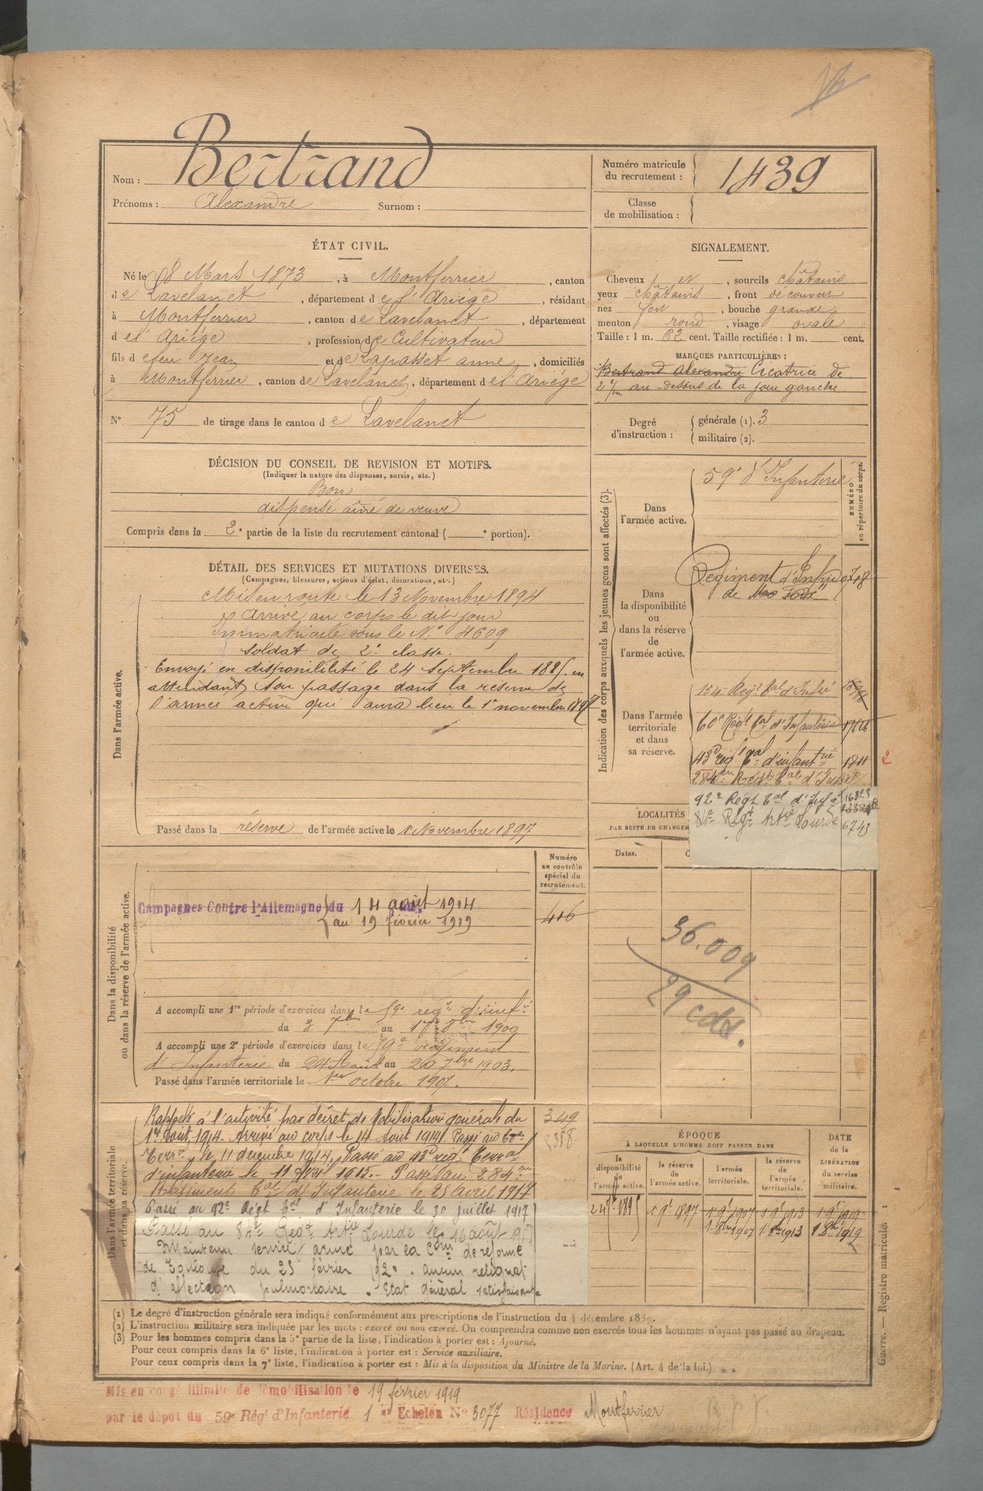 Bertrand
Nom :
Prénoms : Alexandre Surnom :
Numéro matricule du recrutement : 1439
Classe de mobilisation :
ÉTAT CIVIL.
Né le 8 Mars 1873, à Montferrier, canton
de Lavelanet, département de l'Ariège, résidant
à Montferrier, canton de Lavelanet, département
de l'Ariège, profession de Cultivateur
fils de feu Jean et de Lapasset anne, domiciliés
à Montferrier, canton de Lavelanet, département de l'Ariège
N° 75 de tirage dans le canton de Lavelanet
SIGNALEMENT.
Cheveux et, sourcils châtains
yeux châtains, front découvert
nez fort, bouche grande
menton rond, visage ovale
Taille : 1 m. 62 cent. Taille rectifiée : 1 m. cent.
MARQUES PARTICULIÈRES :
Bertrand Alexandre Cicatrice de
2 c/m au-dessus de la joue gauche
Degré d'instruction : générale (1). 3
militaire (2).
DÉCISION DU CONSEIL DE REVISION ET MOTIFS.
(Indiquer la nature des dispenses, sursis, etc.)
Bon
dispensé aîné de veuve
Compris dans la 2e partie de la liste du recrutement cantonal ( e portion).
DÉTAIL DES SERVICES ET MUTATIONS DIVERSES.
(Campagnes, blessures, actions d'éclat, décorations, etc.)
Dans l'armée active.
Mis en route le 13 Novembre 1894
Arrivé au corps le dit jour
Immatriculé sous le N° 4609
Soldat de 2e classe.
Envoyé en disponibilité le 24 Septembre 1895 en
attendant son passage dans la réserve de
l'armée active qui aura lieu le 1er novembre 1897
Passé dans la réserve de l'armée active le 1 Novembre 1897
Indication des corps auxquels les jeunes gens sont affectés (3).
NUMÉRO au répertoire du corps.
Dans l'armée active.
59e d'Infanterie
Dans la disponibilité ou dans la réserve de l'armée active.
Régiment d'Infrie
de
Dans l'armée territoriale et dans sa réserve.
134e Régt Tal d'Infie
60e Régt Tal d'Infanterie
43e reg Tal d'infantrie 1811
284e Regt Tal d'Infie
92e Régt Tal d'Infie 16323
84e Régt Artie Lourde 6743
2
LOCALITÉS
PAR SUITE DE CHANGEM
Dates.
36.009
29 cdd.
Dans la disponibilité ou dans la réserve de l'armée active.
Numéro au contrôle spécial du recrutement.
406
Campagnes Contre l'Allemagne du 14 août 1914
au 19 février 1919
A accompli une 1re période d'exercices dans le 59e régt d'infie
du 2 7bre au 1900
A accompli une 2e période d'exercices dans le 59e régiment
d'Infanterie du 24 Août au 20 7bre 1903.
Passé dans l'armée territoriale le 1er octobre 1907.
Dans l'armée territoriale et dans sa réserve.
Rappelé à l'activité par décret de Mobilisation générale du
1er août 1914. Arrivé au corps le 14 août 1914. Passé au 60e
Terral le 11 décembre 1914, Passé au 43e régt Terral
d'infanterie le 11 1915. Passé au 284e
Régiment Tal d'Infanterie le 25 Avril 1917
Passé au 92e Régt Tal d'Infanterie le 30 juillet 1917
Passé au 84e Régt Artie Lourde le 16 août 1917
Maintenu service armé par la Com de réforme
de Toulouse du 25 février 1920. aucun reliquat
d'affection pulmonaire. Etat général satisfaisant
349
2388
ÉPOQUE
À LAQUELLE L'HOMME DOIT PASSER DANS
la disponibilité de l'armée active.
la réserve de l'armée active.
l'armée territoriale.
la réserve de l'armée territoriale.
DATE de la LIBÉRATION du service militaire.
24 7bre 1895 1 9 1897 1 9 1907 1 9 1913 1 9 1919
1 8bre 1907 1 8bre 1913 1 8bre 1919
Guerre. — Registre matricule 1
(1) Le degré d'instruction générale sera indiqué conformément aux prescriptions de l'instruction du 4 décembre 1889.
(2) L'instruction militaire sera indiquée par les mots : exercé ou non exercé. On comprendra comme non exercés tous les hommes n'ayant pas passé au drapeau.
(3) Pour les hommes compris dans la 5e partie de la liste, l'indication à porter est : Ajourné.
Pour ceux compris dans la 6e liste, l'indication à porter est : Service auxiliaire.
Pour ceux compris dans la 7e liste, l'indication à porter est : Mis à la disposition du Ministre de la Marine. (Art. 4 de la loi.)
Mis en congé illimité de démobilisation le 19 février 1919
par le dépôt du 59e Régt d'Infanterie 1er Echelon N° 3077 Résidence Montferrier